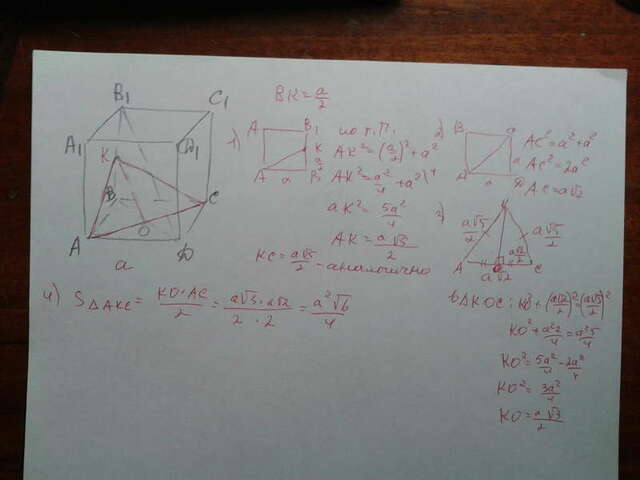 B₁ C₁
A₁ K D₁
B C
A O D
a
BK = a/2
1) A B₁ K a/2 A a B
по т. П.
AK² = (a/2)² + a²
AK² = a²/4 + a²
aK² = 5a²/4
AK = a√5/2
KC = a√5/2 - аналогично
2) B a A a D
AC² = a² + a²
AC² = 2a²
AC = a√2
3) a√5/2 a√5/2
A a√2/2 C
a√2
в ΔKOC: KO² + (a√2/2)² = (a√5/2)²
KO² + a²2/4 = a²5/4
KO² = 5a²/4 - 2a²/4
KO² = 3a²/4
KO = a√3/2
4) S ΔAKC = KO·AC/2 = a√3·a√2/2·2 = a²√6/4